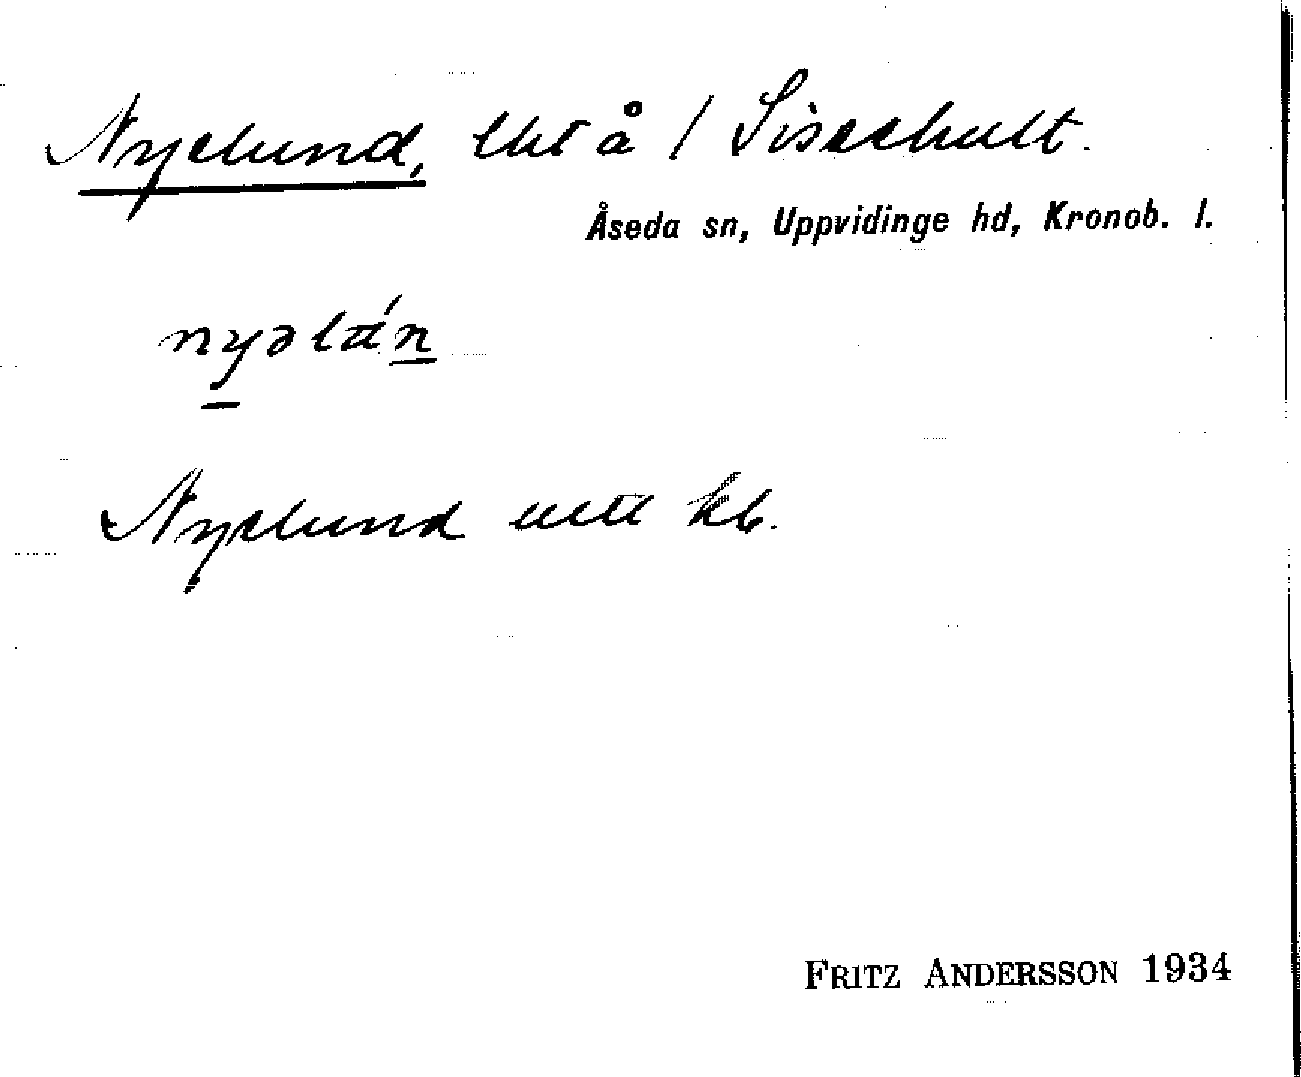 Nyelund, lht å / Sissehult.
Åseda sn, Uppvidinge hd, Kronob. l.
nyəlún
Nyelund utt kb.
FRITZ ANDERSSON 1934